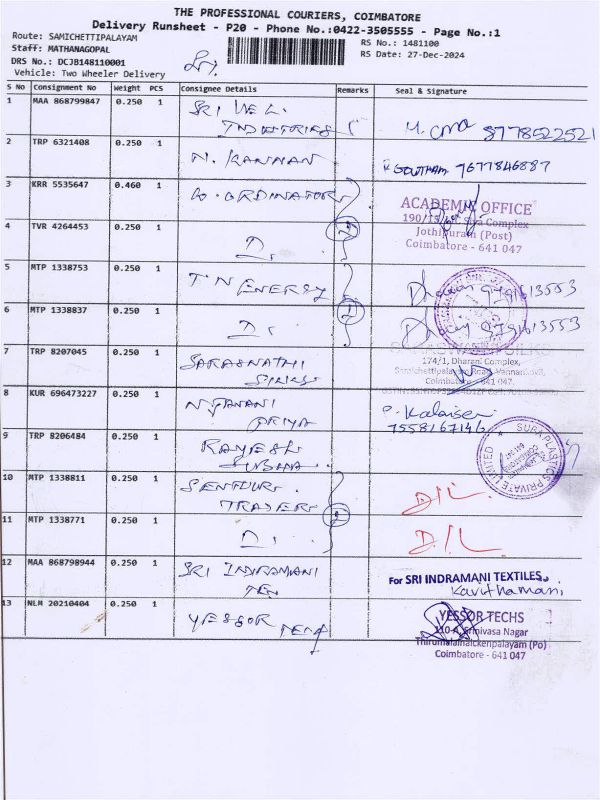 THE PROFESSIONAL COURIERS, COIMBATORE
Delivery Runsheet - P20 - Phone No.:0422-3505555 - Page No.:1
Route: SAMICHETTIPALAYAM
RS No.: 1481100
Staff: MATHANAGOPAL
RS Date: 27-Dec-2024
DRS No.: DCJB148110001
Vehicle: Two Wheeler Delivery
S No Consignment No Weight PCS Consignee Details Remarks Seal & Signature
1 MAA 868799847 0.250 1 SRI VEL
INDUSTRIES 8778522521
2 TRP 6321408 0.250 1 N. KANNAN GOUTHAM 7677846887
3 KRR 5535647 0.460 1 CO. ORDINATOR
ACADEMY OFFICE
Complex
Jothipuram (Post)
Coimbatore - 641 047
4 TVR 4264453 0.250 1 D.
5 MTP 1338753 0.250 1 T.N ENERGY 9791613553
6 MTP 1338837 0.250 1 D. 9791613553
7 TRP 8207045 0.250 1 SARASWATHI
SILKS
174/1, Dharani Complex,
Coimbatore - 641 047.
8 KUR 696473227 0.250 1 NITHYANI
PRIYA
P. Kalaiseri
7558167146
9 TRP 8206484 0.250 1 RAJESH
SUBHA
SUBA PLASTICS PRIVATE LIMITED
10 MTP 1338811 0.250 1 SENTHUR
TRADERS D/L
11 MTP 1338771 0.250 1 D. D/L
12 MAA 868798944 0.250 1 SRI INDRAMANI
TEX
For SRI INDRAMANI TEXTILES
Kavithamani
13 NLM 20210404 0.250 1 YESSOR TECH
YESSOR TECHS
110-A, Srinivasa Nagar
Thirumalainaickenpalayam (Po)
Coimbatore - 641 047